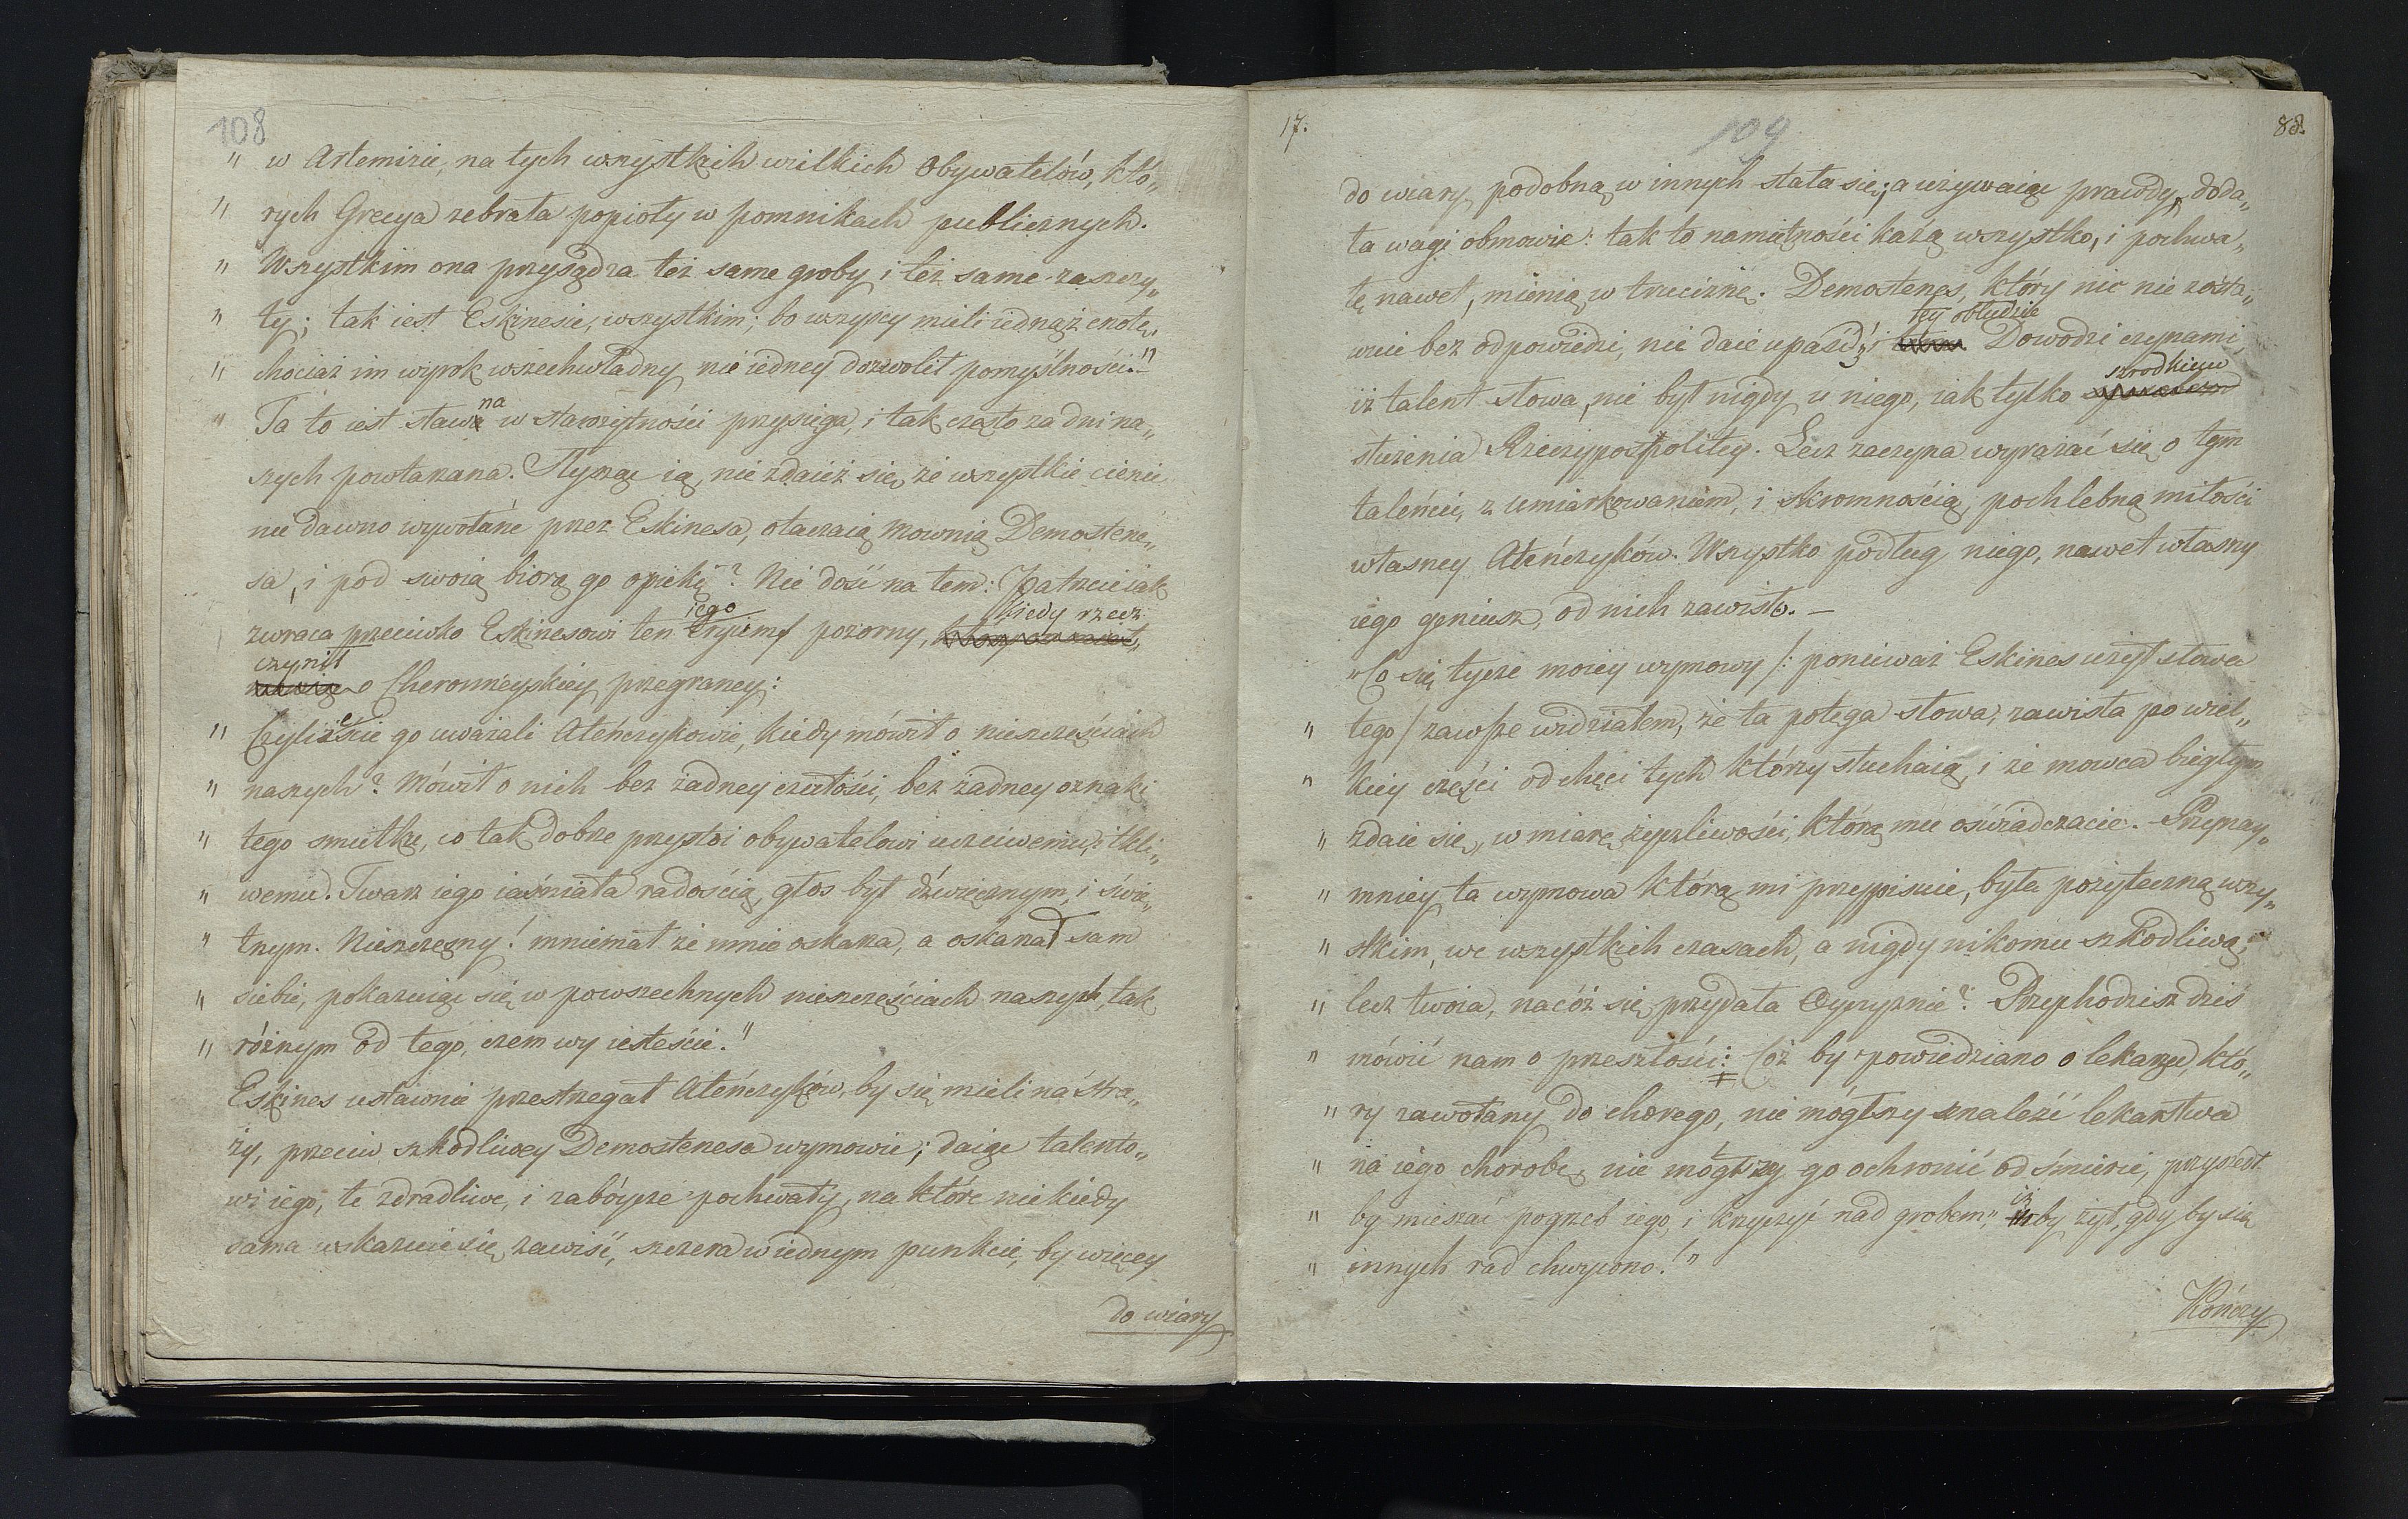 108
„ w Artemizie, na tych wszystkich wielkich Obywatelów, któ„
„ rych Grecya zebrała popioły w pomnikach publicznych.
„ Wszystkim ona przysądza też same groby i też same zaszczy„
„ ty; tak iest Eskinesie, wszystkim; bo wszyscy mieli iednąż cnotę„
„ chociaż im wyrok wszechwładny nie iedney dozwolił pomyślności."
na
„ Ta to iest sławna w starożytności przysięga, i tak często za dni na„
szych powtarzana. Słysząc ią, nie zdaież się, że wszystkie cienie
nie dawno wywołane przez Eskinesa, otaczaią Mownią Demostene„
sa, i pod swoią biorą go opiekę? Nie dość na tem: Patrzcie iak
iego kiedy rzecz
zwraca przeciwko Eskinesowi ten tryumf pozorny,
czynił
o Cheronneyskiey przegraney:
„ Czyliżeście go uważali Ateńczykowie, kiedy mówił o nieszczęściach
„ naszych? Mówił o nich bez żadney czułości, bez żadney oznaki
„ tego smutku, co tak dobrze przystoi obywatelowi uczciwemu, i tkli„
„ wemu. Twarz iego iaśniała radością, głos był dźwięcznym, i świe„
„ tnym. Nieszczęsny! mniemał że mnie oskarża, a oskarżał sam
„ siebie, pokazuiąc się w powszechnych nieszczęściach naszych, tak
„ różnym od tego, czem wy iesteście."
Eskines ustawnie przestrzegał Ateńczyków, by się mieli na stra„
ży, przeciw szkodliwey Demostenesa wymowie; daiąc talento„
wi iego, te zdradliwe, i zabóycze pochwały, na które niekiedy
sama wskazuie się zawiść, szczera w iednym punkcie, by więcey
do wiary
17.
109
88.
do wiary podobną w innych stała się; a używaiąc prawdy, doda„
ła wagi obmowie: tak to namiętności każą wszystko, i pochwa„
łę nawet, mienią w truciznę. Demostenes, który nic nie zosta„
tey obłudzie
wuie bez odpowiedzi, nie daie upaść i Dowodzi czynami,
szrodkiem
iż talent słowa, nie był nigdy u niego, iak tylko
służenia Rzeczypospolitey. Lecz zaczyna wyrażać się o tym
taleńcie, z umiarkowaniem, i skromnością, pochlebną miłości
własney Ateńczyków. Wszystko podług niego, nawet własny
iego geniusz, od nich zawisło. –
„Co się tycze moiey wymowy /: ponieważ Eskines użył słowa
„ tego / zawsze widziałem, że ta potęga słowa, zawisła po wiel„
„ kiey części od chęci tych którzy słuchaią, i że mowca biegłym
„ zdaie się, w miarę życzliwości, którą mu oświadczacie. Przynay„
„ mniey ta wymowa którą mi przypisuie, była pożyteczną wszy„
„ stkim, we wszystkich czasach, a nigdy nikomu szkodliwą;
„ lecz twoia, na cóż się przydała Oyczyznie? Przychodzisz dziś
„ mówić nam o przeszłości: Cóż by powiedziano o lekarzu, któ„
„ ry zawołany do chorego, nie mógłszy znaleźć lekarstwa
„ na iego chorobę, nie mógłszy go ochronić od śmierci, przyszedł
iż
„ by mieszać pogrzeb iego, i krzyczyć nad grobem„ by żył, gdy by się
„ innych rad chwycono!"
Kończy